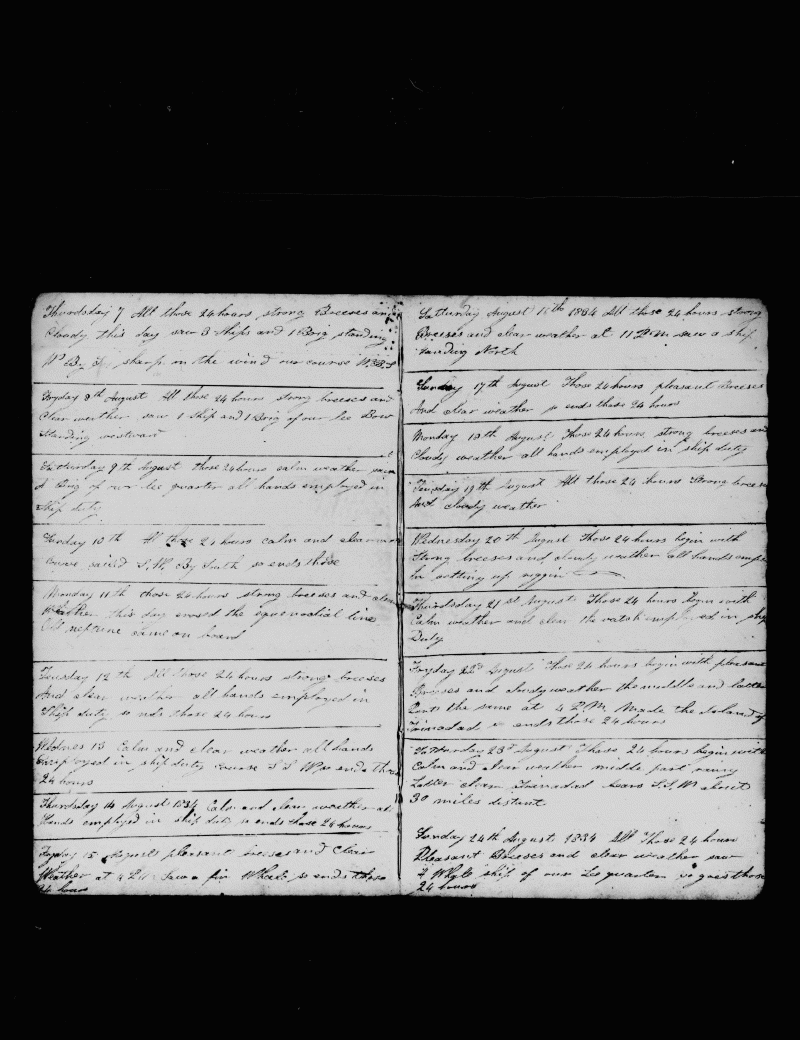 Thurdsday 7 All those 24 hours strong Breeses and
Cloudy this day saw 3 Ships and 1 Brig standing
sharp on the wind our course
Fryday 8th August All those 24 hours strong breeses and
Clear weather saw 1 Ship and 1 Brig of our lee Bow
Standing westward
Saturday 9th August those 24 hours calm weather saw
A Brig of our lee quarter all hands employed in
Ship duty
Sunday 10th All those 24 hours calm and clear
By South so ends those
Monday 11th those 24 hours strong breeses and clear
Weather this day crosed the equenoctial line
Old neptune came on board
Teusday 12th All those 24 hours strong breeses
And clear weather all hands employed in
Ship duty so ends those 24 hours
Wednes 13 Calm and clear weather all hands
Employed in ship duty course S S W so ends those
24 hours
Thurdsday 14 August 1834 Calm and clear weather all
Hands employed in ship duty so ends those 24 hours
Fryday 15 August pleasant breeses and Clear
Weather at 4 P.M Saw a fin Whale so ends those
24 hours
Satturday August 16th 1834 All those 24 hours strong
Breeses and clear weather at 11 P.M saw a ship
standing North
Sunday 17th August Those 24 hours pleasant Breeses
And clear weather so ends those 24 hours
Monday 18th August Those 24 hours strong breeses and
Cloudy weather all hands employed in ship duty
Teusday 19th August All those 24 hours Strong breeses
And cloudy weather
Wednesday 20th August Those 24 hours begin with
Strong breeses and cloudy weather all hands
In setting up riggin
Thurdsday 21st August Those 24 hours begin with
Calm weather and clear the watch employed in ship
Duty
Fryday 22d August Those 24 hours begin with pleasant
Breeses and cloudy weather the middle and latter
Parts the same at 4 P.M. Made the Island of
Trinadad so ends those 24 hours
Satturday 23d August Those 24 hours begin with
Calm and clear weather middle part rainy
Latter clear Trinadad bears S.S.W about
30 miles distant.
Sunday 24th August 1834 All Those 24 hours
Pleasant Breeses and clear weather saw
A Whale ship of our Lee quarter so goes those
24 hours